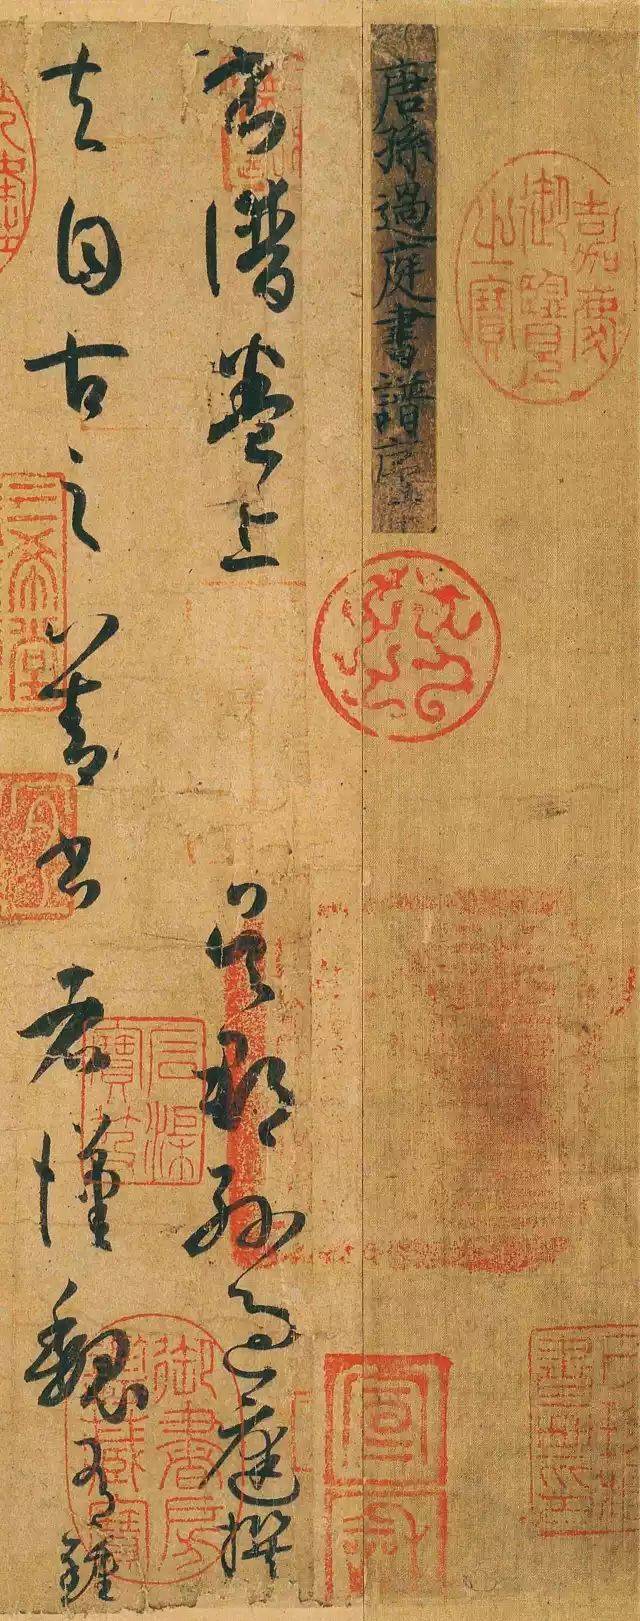 嘉慶御覽之寶
唐孫過庭書譜序
宣和
書譜卷上 吳郡孫過庭撰
石渠寶笈
御書房鑑藏寶
夫自古之善書者漢魏有鍾
三希堂